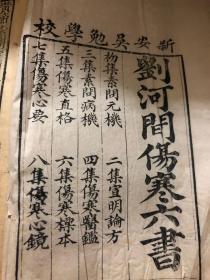 新安吳勉學校
劉河間傷寒六書
初集素問元機
二集宣明論方
三集素問病機
四集傷寒醫鑑
五集傷寒直格
六集傷寒標本
七集傷寒心要
八集傷寒心鏡